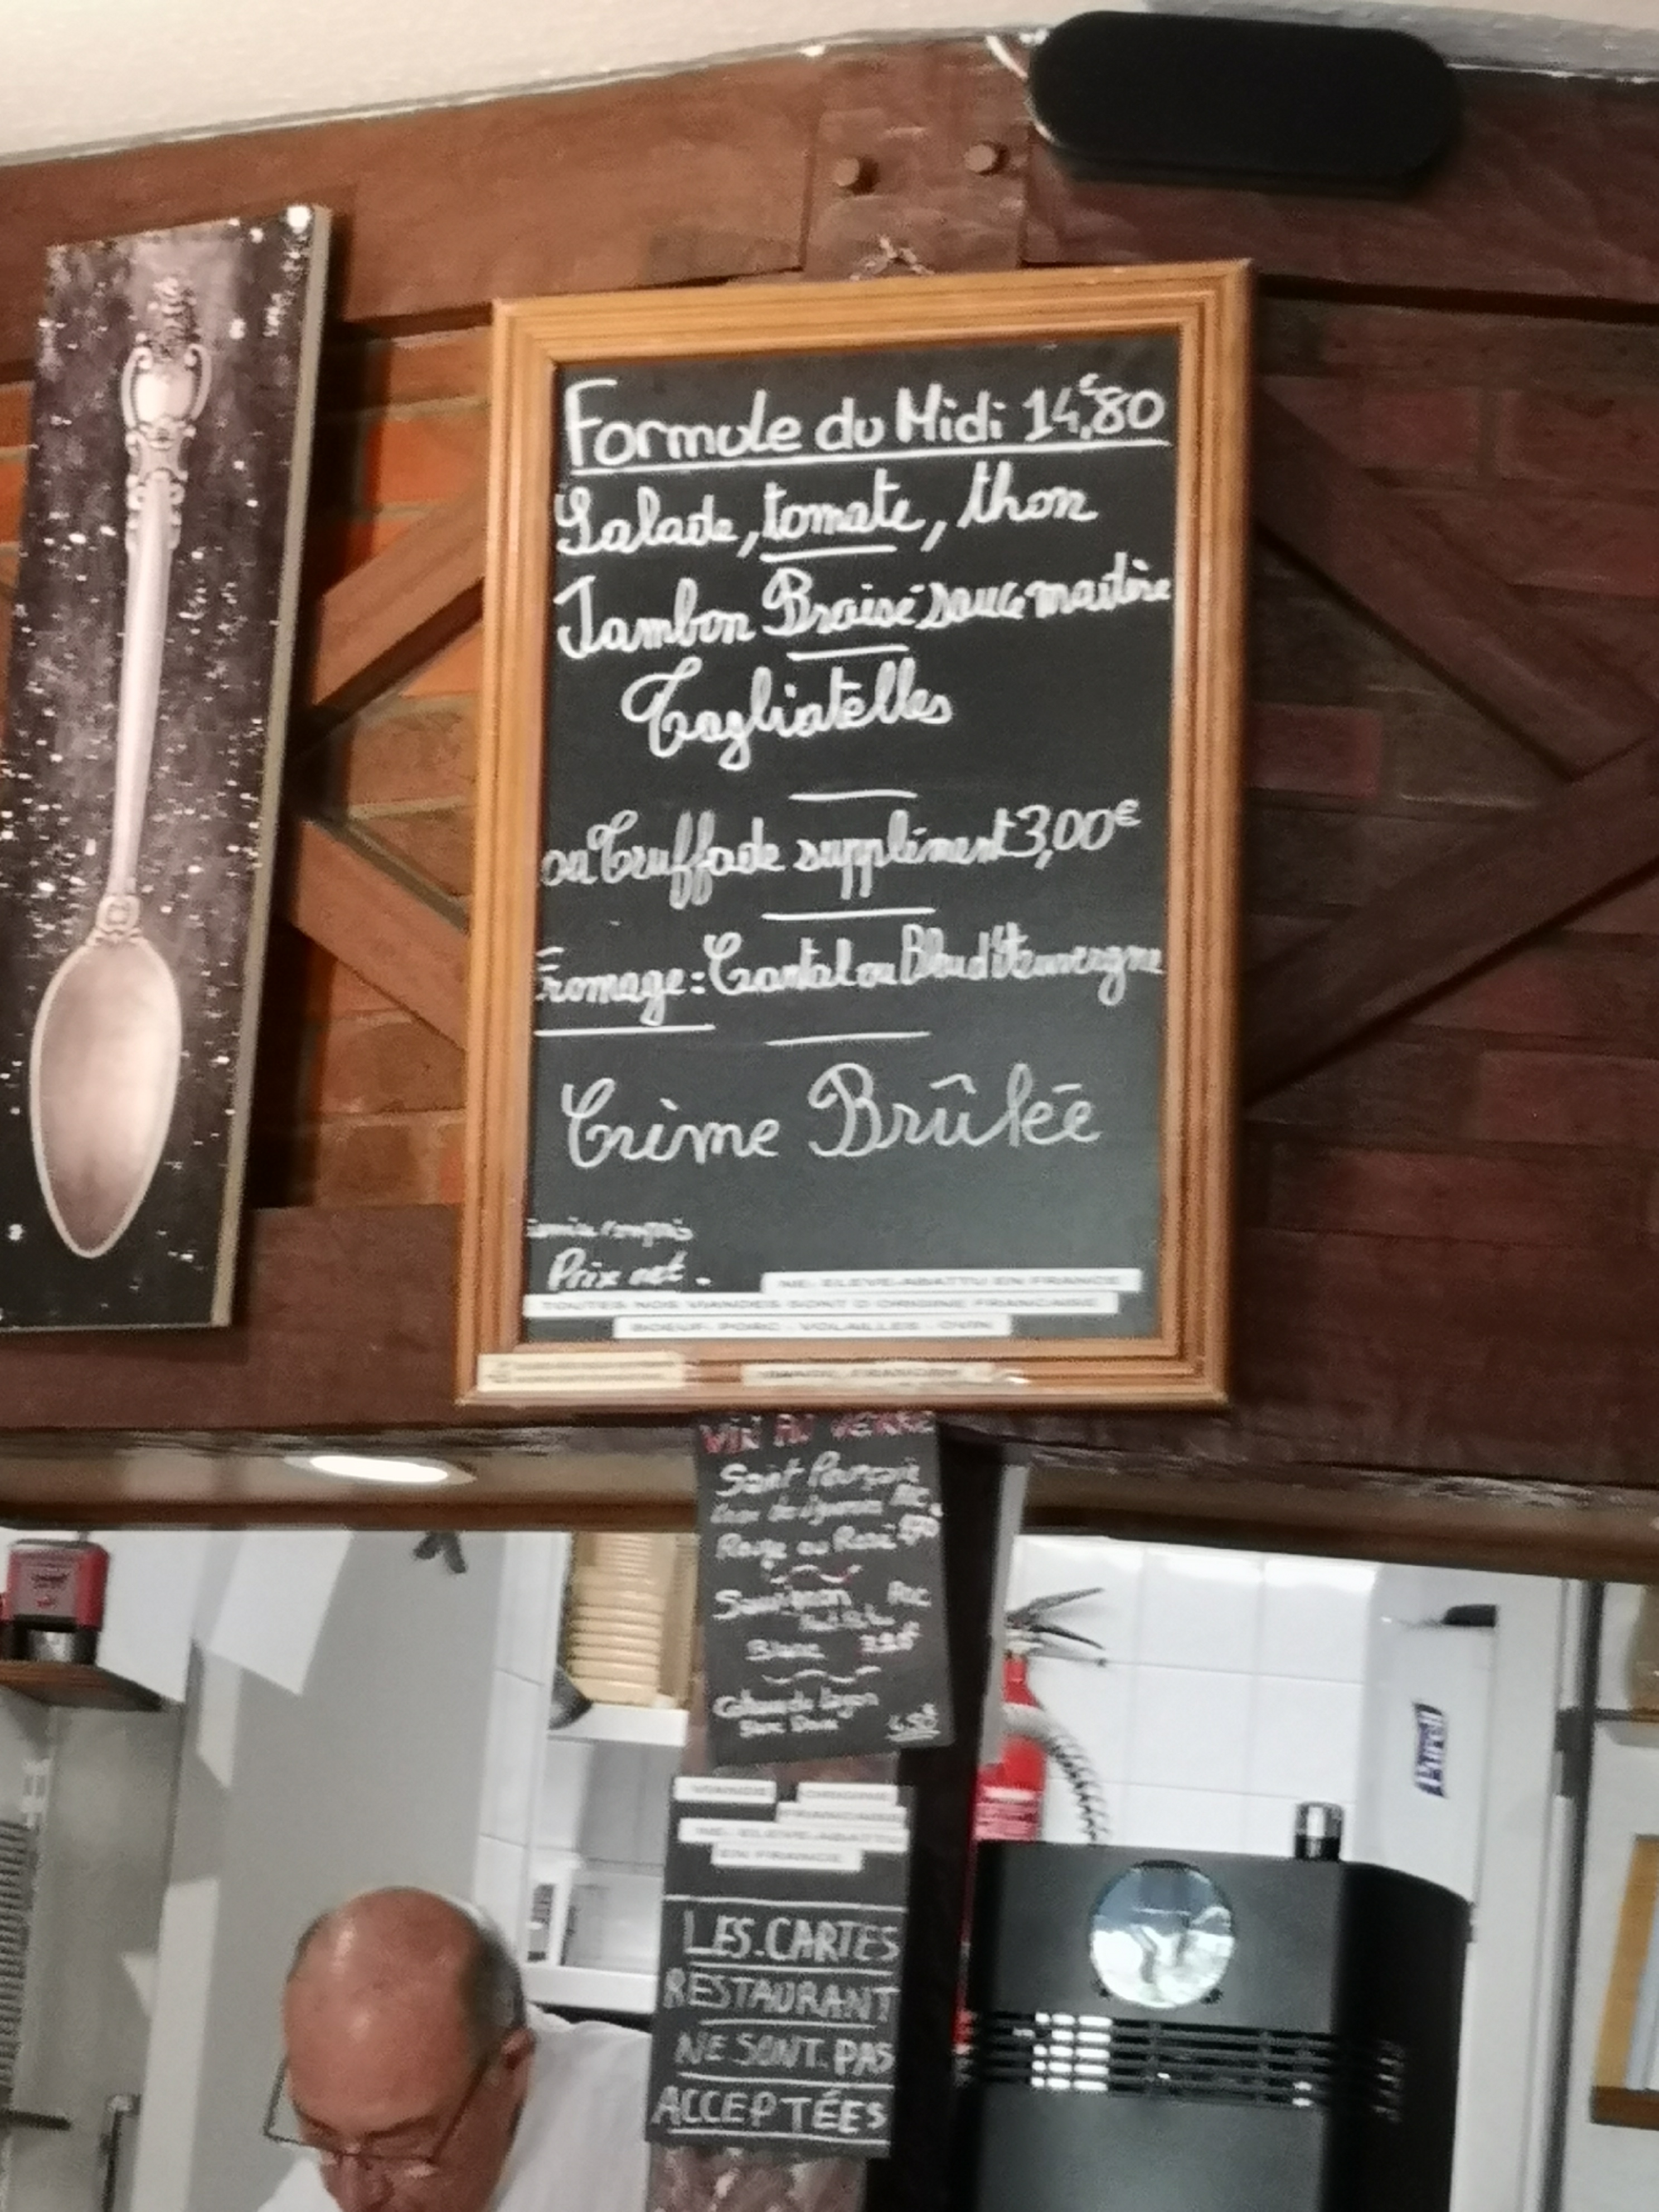 Formule du Midi 14,€80
Salade, tomate, thon
Jambon Braisé sauce
Tagliatelles
ou Truffade supplément 3,00€
Fromage: Cantal ou Bleu d'Auvergne
Crème Brûlée
compris
Prix net.
NE- ELEVE-ABATTU EN FRANCE
TOUTES NOS VIANDES SONT D'ORIGINE FRANCAISE
BOEUF- PORC - VOLAILLES - OVIN
VIN AU VERRE
Saint
Rouge ou Rosé
Sauvignon
Blanc
VIANDE ORIGINE
FRANCAISE
NE- ELEVE-ABATTU
EN FRANCE
LES CARTES
RESTAURANT
NE SONT PAS
ACCEPTÉES
Purell